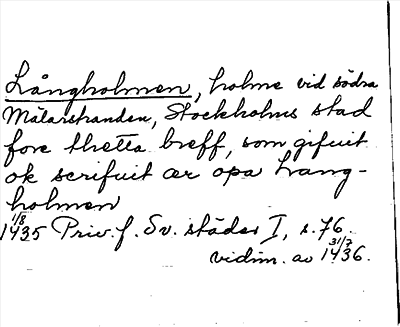 Långholmen, holme vid södra
Mälarstranden, Stockholms stad
fore thetta breff, som gifuit
ok scrifuit ær opa Lang-
holmen
1/8 1435 Priv. f. Sv. städer I, s. 76.
vidim. av 31/7 1436.